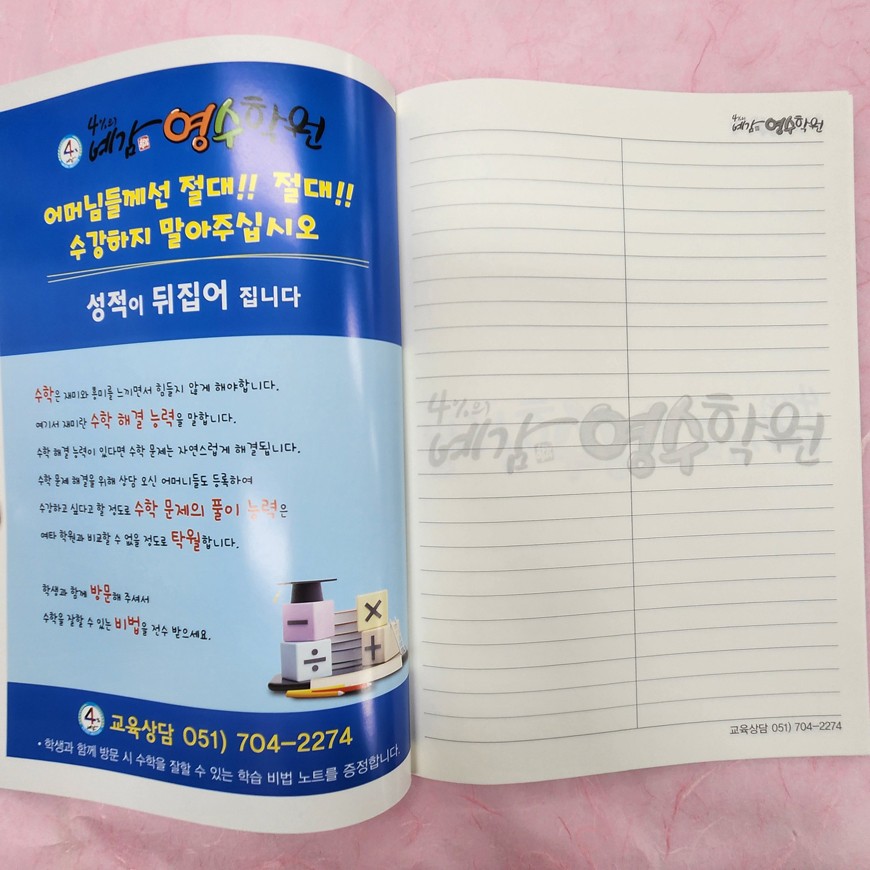 4%의
예감 영수학원
어머님들께선 절대!! 절대!!
수강하지 말아주십시오
성적이 뒤집어 집니다
수학은 재미와 흥미를 느끼면서 힘들지 않게 해야합니다.
예기서 재미란 수학 해결 능력을 말합니다.
수학 해결 능력이 있다면 수학 문제는 자연스럽게 해결됩니다.
수학 문제 해결을 위해 상담 오신 어머니들도 등록하여
수강하고 싶다고 할 정도로 수학 문제의 풀이 능력은
여타 학원과 비교할 수 없을 정도로 탁월합니다.
학생과 함께 방문해 주셔서
수학을 잘할 수 있는 비법을 전수 받으세요.
교육상담 051) 704-2274
• 학생과 함께 방문 시 수학을 잘할 수 있는 학습 비법 노트를 증정합니다.
4%의
예감 영수학원
4%의
예감 영수학원
교육상담 051) 704-2274